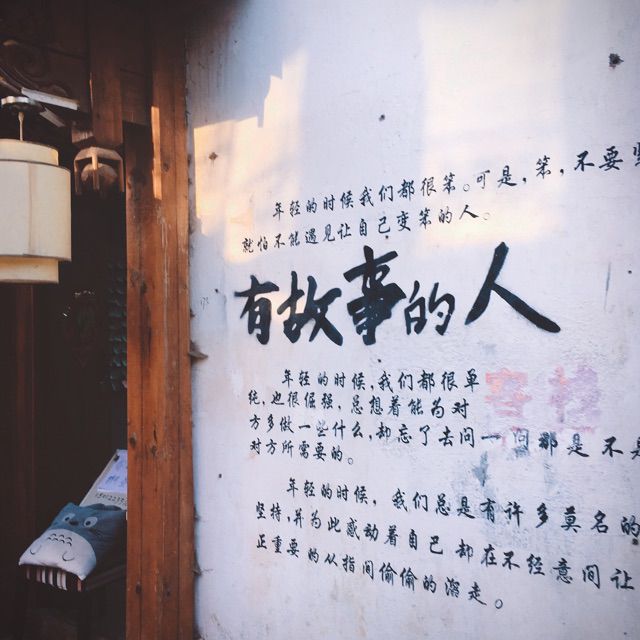 年轻的时候我们都很笨。可是,笨,不要
就怕不能遇见让自己变笨的人。
有故事的人
年轻的时候,我们都很单
纯,也很倔强,总想着能为对
方多做一些什么,却忘了去问一问那是不是
对方所需要的。
客栈
年轻的时候,我们总是有许多莫名的
坚持,并为此感动着自己 却在不经意间让
正重要的从指间偷偷的溜走。